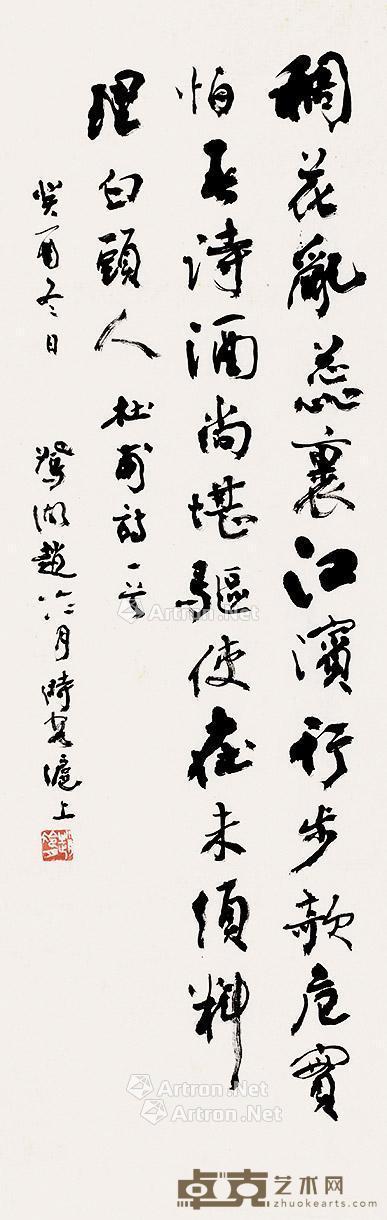 稠花亂蕊裹江濱行步欹危實
怕春詩酒尚堪驅使在未須料
理白頭人 杜甫詩一首
癸酉冬日 鴛湖趙冷月時客滬上
Artron.Net
Artron.Net
Artron.Net
Artron.Net
卓克艺术网
zhuokearts.com